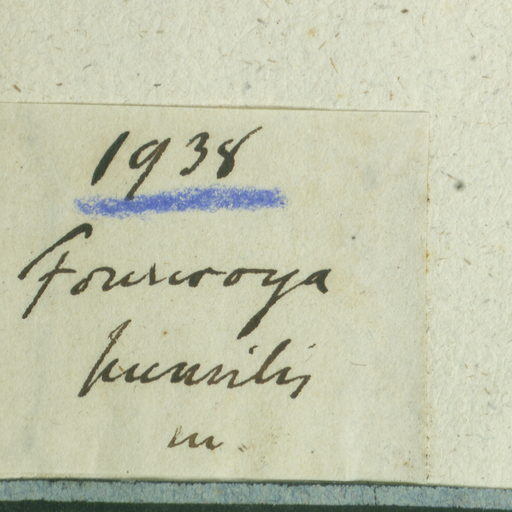 1938
Fourcroya
humilis
m.